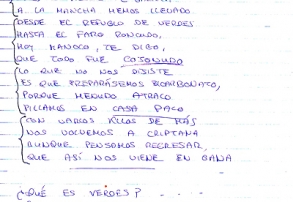 A LA MANCHA HEMOS LLEGADO
DESDE EL REFUGIO DE VERDES
HASTA EL FARO RONCUDO,
HOY MANOLO, TE DIGO,
QUE TODO FUE COJONUDO
LO QUE NO NOS DIJISTE
ES QUE PREPARÁSEMOS BICARBONATO,
PORQUE MENUDO ATRACO
PILLAMOS EN CASA PACO
CON VARIOS KILOS DE MÁS
NOS VOLVEMOS A CRIPTANA
AUNQUE PENSAMOS REGRESAR,
QUE ASÍ NOS VIENE EN GANA
¿QUÉ ES VERDES?